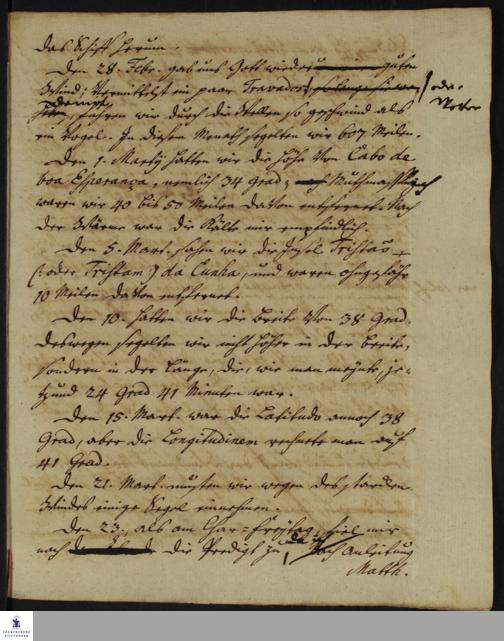 das Schiff herum.
Den 28. Febr. gab uns Gott wieder guten
Wind; Vermittelst ein paar Travados, oder
Dampf, fuhren wir durch die Wellen so geschwind als
ein Vogel. In diesem Monath segelten wir 607 Meilen.
Den 1. Martij hatten wir die Höhe von Cabo de
boa Esperança, nemlich 34 Grad; nach Muthmaßung
waren wir 40 bis 50 Meilen davon entfernet. Nach
der Wärme war die Kälte mir empfindlich.
Den 5. Mart. sahen wir die Insel Tristaõ
(: oder Tristam :) da Cunha, und waren ohngefähr
10 Meilen davon entfernet.
Den 10. hatten wir die Breite von 38 Grad.
deswegen segelten wir nicht höher in der Breite,
sondern in der Länge, die, wie man meynte, je-
tzund 24 Grad 41 Minuten war.
Den 15. Mart. war die Latitudo annoch 38
Grad, aber die Longitudinem rechnete man auf
41 Grad.
Den 21. Mart. musten wir wegen des starcken
Windes einige Segel einnehmen.
Den 23. als am Char-Freytag, fiel mir
nach die Predigt zu, da nach Anleitung
Matth.
FRANCKESCHE
STIFTUNGEN